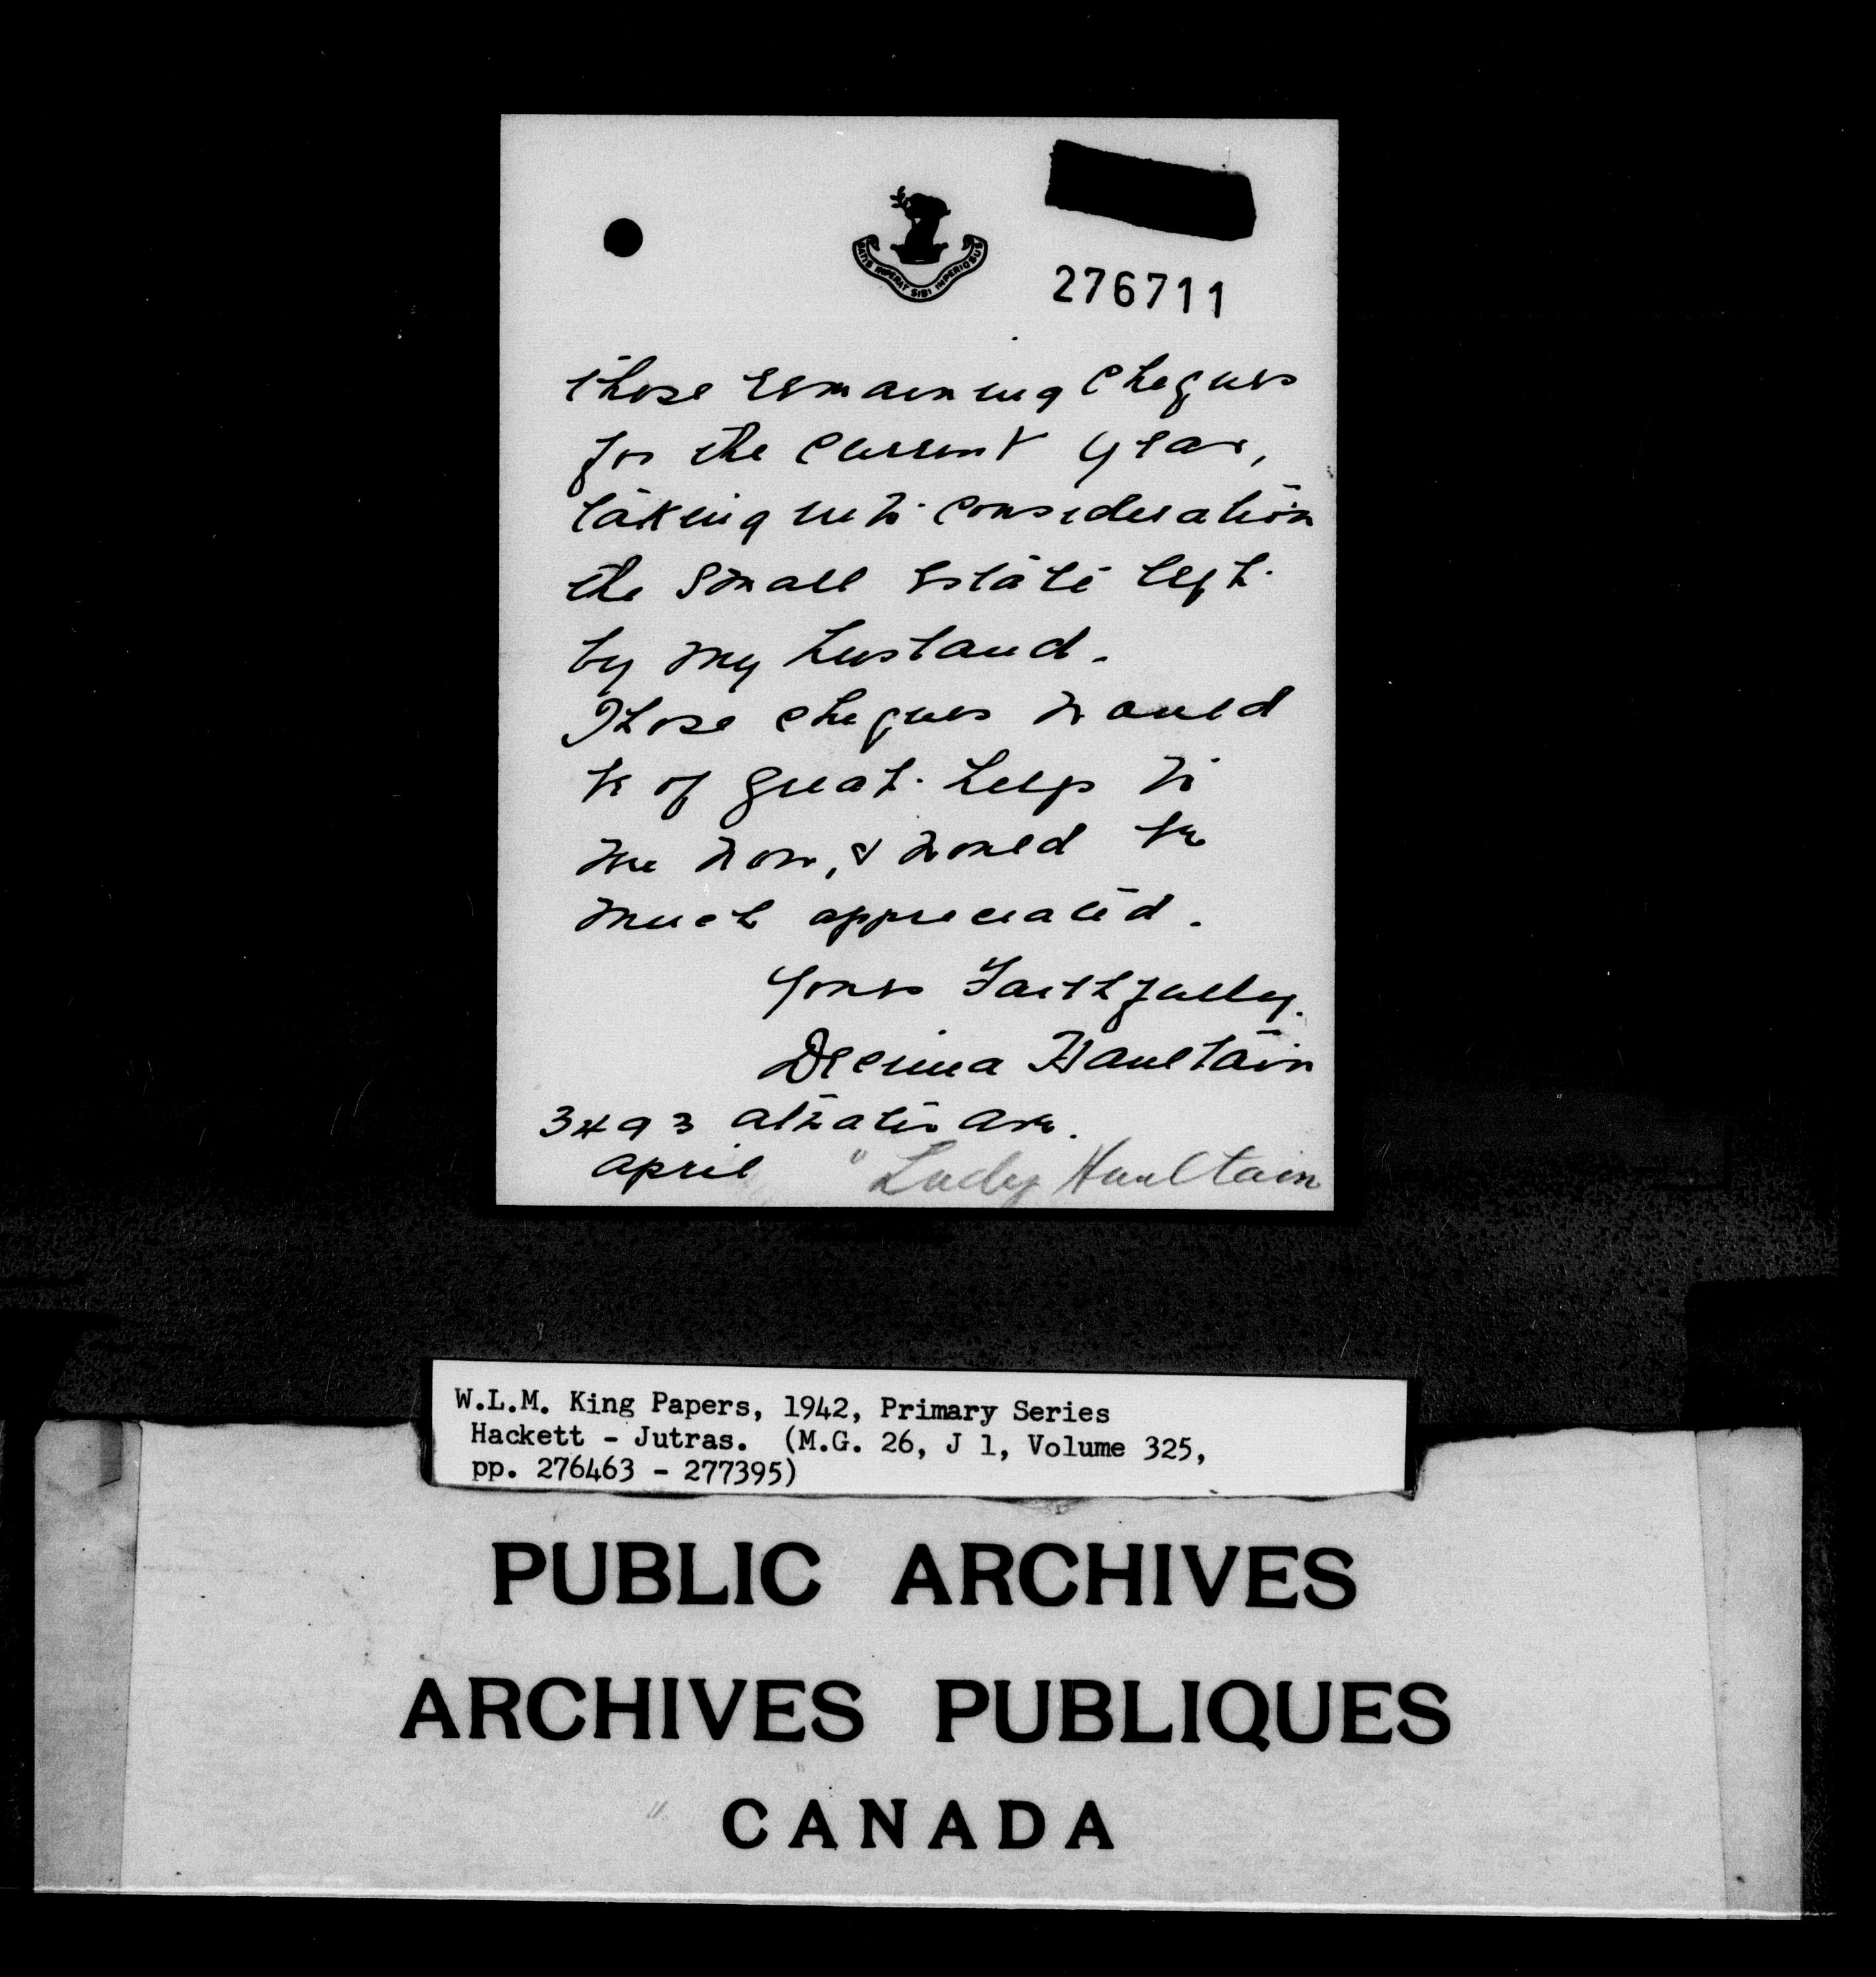 SATIS IMPERAT SIBI IMPERIOSUS
276711
those remaining cheques
for the current year,
taking into consideration
the small estate left
by my husband.
Those cheques would
be of great help to
me now, & would be
much appreciated.
Yours Faithfully.
Decima Haultain
3493 Atwater Ave.
April
"Lady Haultain
W.L.M. King Papers, 1942, Primary Series
Hackett - Jutras. (M.G. 26, J 1, Volume 325,
pp. 276463 - 277395)
PUBLIC ARCHIVES
ARCHIVES PUBLIQUES
CANADA